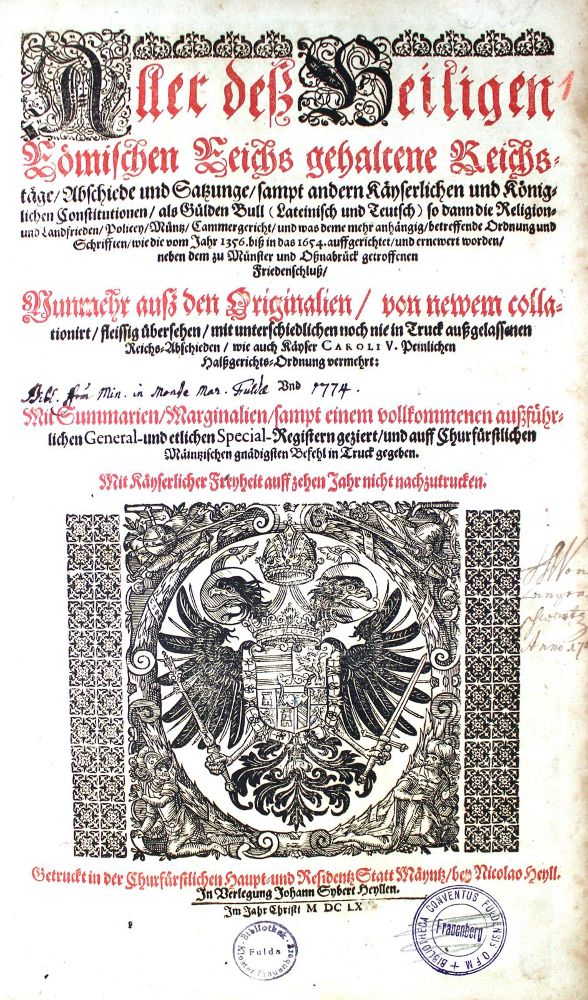 Aller deß Heiligen
Römischen Reichs gehaltene Reichs-
täge/Abschiede und Satzunge/sampt andern Käyserlichen und König-
lichen Constitutionen/als Gülden Bull (Lateinisch und Teutsch) so dann die Religion-
und Landfrieden/Policey/Müntz/Cammergericht/und was deme mehr anhängig/betreffende Ordnung und
Schrifften/wie die vom Jahr 1356. biß in das 1654. auffgerichtet/und ernewert worden/
neben dem zu Münster und Oßnabrück getroffenen
Friedenschluß/
Nunmehr auß den Originalien/ von newem colla-
tionirt/fleissig übersehen/mit unterschiedlichen noch nie in Truck außgelassenen
Reichs-Abschieden/ wie auch Käyser CAROLI V. Peinlichen
Halßgerichts-Ordnung vermehrt:
Min. in Monte Mar. Fuldæ Und 1774.
Mit Summarien/Marginalien/sampt einem vollkommenen außführ-
lichen General-und etlichen Special-Registern geziert/und auff Churfürstlichen
Mäintzischen gnädigsten Befehl in Truck gegeben.
Mit Käyserlicher Freyheit auff zehen Jahr nicht nachzutrucken.
Anno
Getruckt in der Churfürstlichen Haupt-und Residentz Statt Mäyntz/bey Nicolao Heyll.
In Verlegung Johann Sybert Heyllen.
Im Jahr Christi M DC LX
Bibliothek
Fulda
Kloster Frauenberg
BIBLIOTHECA CONVENTUS FULDENSIS OFM
Frauenberg